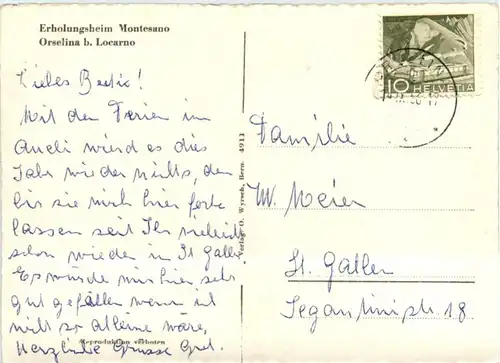 Erholungsheim Montesano
Orselina b. Locarno
Liebes
Mit den Ferien im
wird es dies
Jahr wieder nichts, denn
bis sie mich hier fort
lassen seid Ihr vielleicht
schon wieder in St. Gallen
Es würde mir hier sehr
gut gefallen wenn ich
nicht so alleine wäre,
Herzliche Grüsse
Reproduktion verboten
Verlag O. Wyrsch, Bern. 4913
10 HELVETIA
Familie
W. Meier
St. Gallen
str. 18